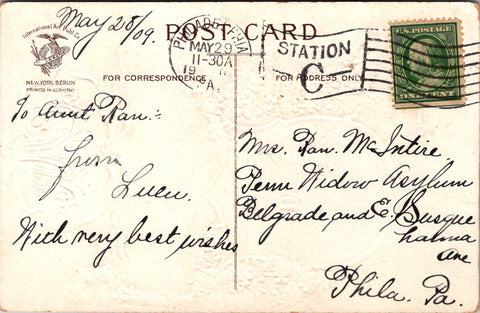 May 28/09.
POST CARD
International Art Publ. Co.
NEW YORK BERLIN
PRINTED IN GERMANY
PHILADELPHIA
MAY 29
11-30A
19
PA.
STATION
C
U.S. POSTAGE
ONE CENT
FOR CORRESPONDENCE
FOR ADDRESS ONLY
To Aunt Ran:-
from
Lucu.
With very best wishes
Mrs. Ran. McIntire
Penn Widow Asylum
Belgrade and E. Susque
hanna
ave
Phila. Pa.